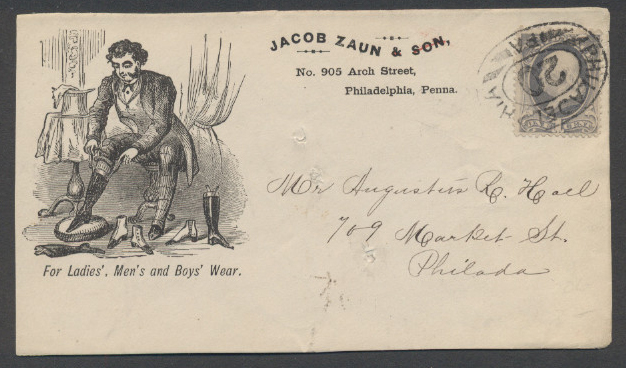 JACOB ZAUN & SON,
No. 905 Arch Street,
Philadelphia, Penna.
PHILADELPHIA
22
Mr Augustus R. Hall
709 Market St.
Philada
For Ladies', Men's and Boys' Wear.